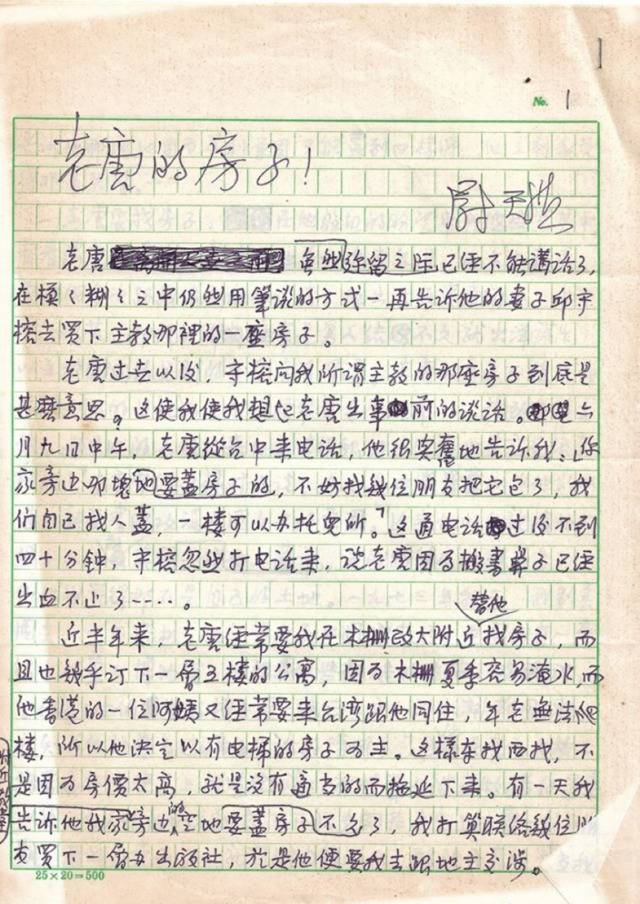 No. 1
老唐的房子！
尉天驄
老唐 虽然弥留之际已经不能講话了，
在模模糊糊之中仍然用筆谈的方式一再告诉他的妻子邱守
榕去買下主教那裡的一座房子。
老唐过去以後，守榕向我所谓主教的那座房子到底是
甚麽意思。这使我使我想起老唐出事前的谈话。那是六
月九日中午，老唐從台中来电话，他很兴奮地告诉我：「你
家旁边那塊地要蓋房子的，不妨找幾位朋友把它包了，我
们自己找人蓋，一楼可以办托兒所。」这通电话过後不到
四十分钟，守榕忽然打电话来，说老唐因为搬書鼻子已经
出血不止了……。
替他
近半年来，老唐经常要我在木栅政大附近找房子，而
且也幾乎订下一層五楼的公寓，因为木栅夏季容易淹水，而
他香港的一位阿姨又经常要来台湾跟他同住，年老無法爬
楼，所以他决定以有电梯的房子为主。这樣东找西找，不
是因为房價太高，就是没有適当的而拖延下来。有一天我
附近
告诉他我家旁边的空地要蓋房子不久了，我打算联络幾位朋
友買下一層办出版社，於是他便要我去跟地主交涉。
25×20=500